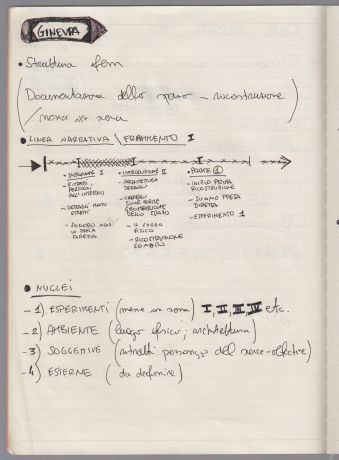 GINEVRA
• Struttura film
(Documentazione dello spazio - ricostruzione)
/messa in scena
• LINEA NARRATIVA \ FRAMMENTO I
• INTRODUZIONE I
- RITRATTO
PERSONAGGI
ALL'INTERNO
- DETTAGLI MOLTO
STRETTI
- SONORO NON
IN PRESA
DIRETTA
• INTRODUZIONE II
- ARCHITETTURA
DETTAGLI
DELLO SPAZIO
- IL LUOGO
FISICO
- RICOSTRUZIONE
• PARTE ①
- INIZIO PRIMA
RICOSTRUZIONE
- SUONO PRESA
DIRETTA
- ESPERIMENTO 1
• NUCLEI
- 1) ESPERIMENTI (messa in scena) I, II, III, IV etc.
- 2) AMBIENTE (luogo fisico; architettura)
- 3) SOGGETTIVE (ritratti personaggi del
- 4) ESTERNE (da definire)